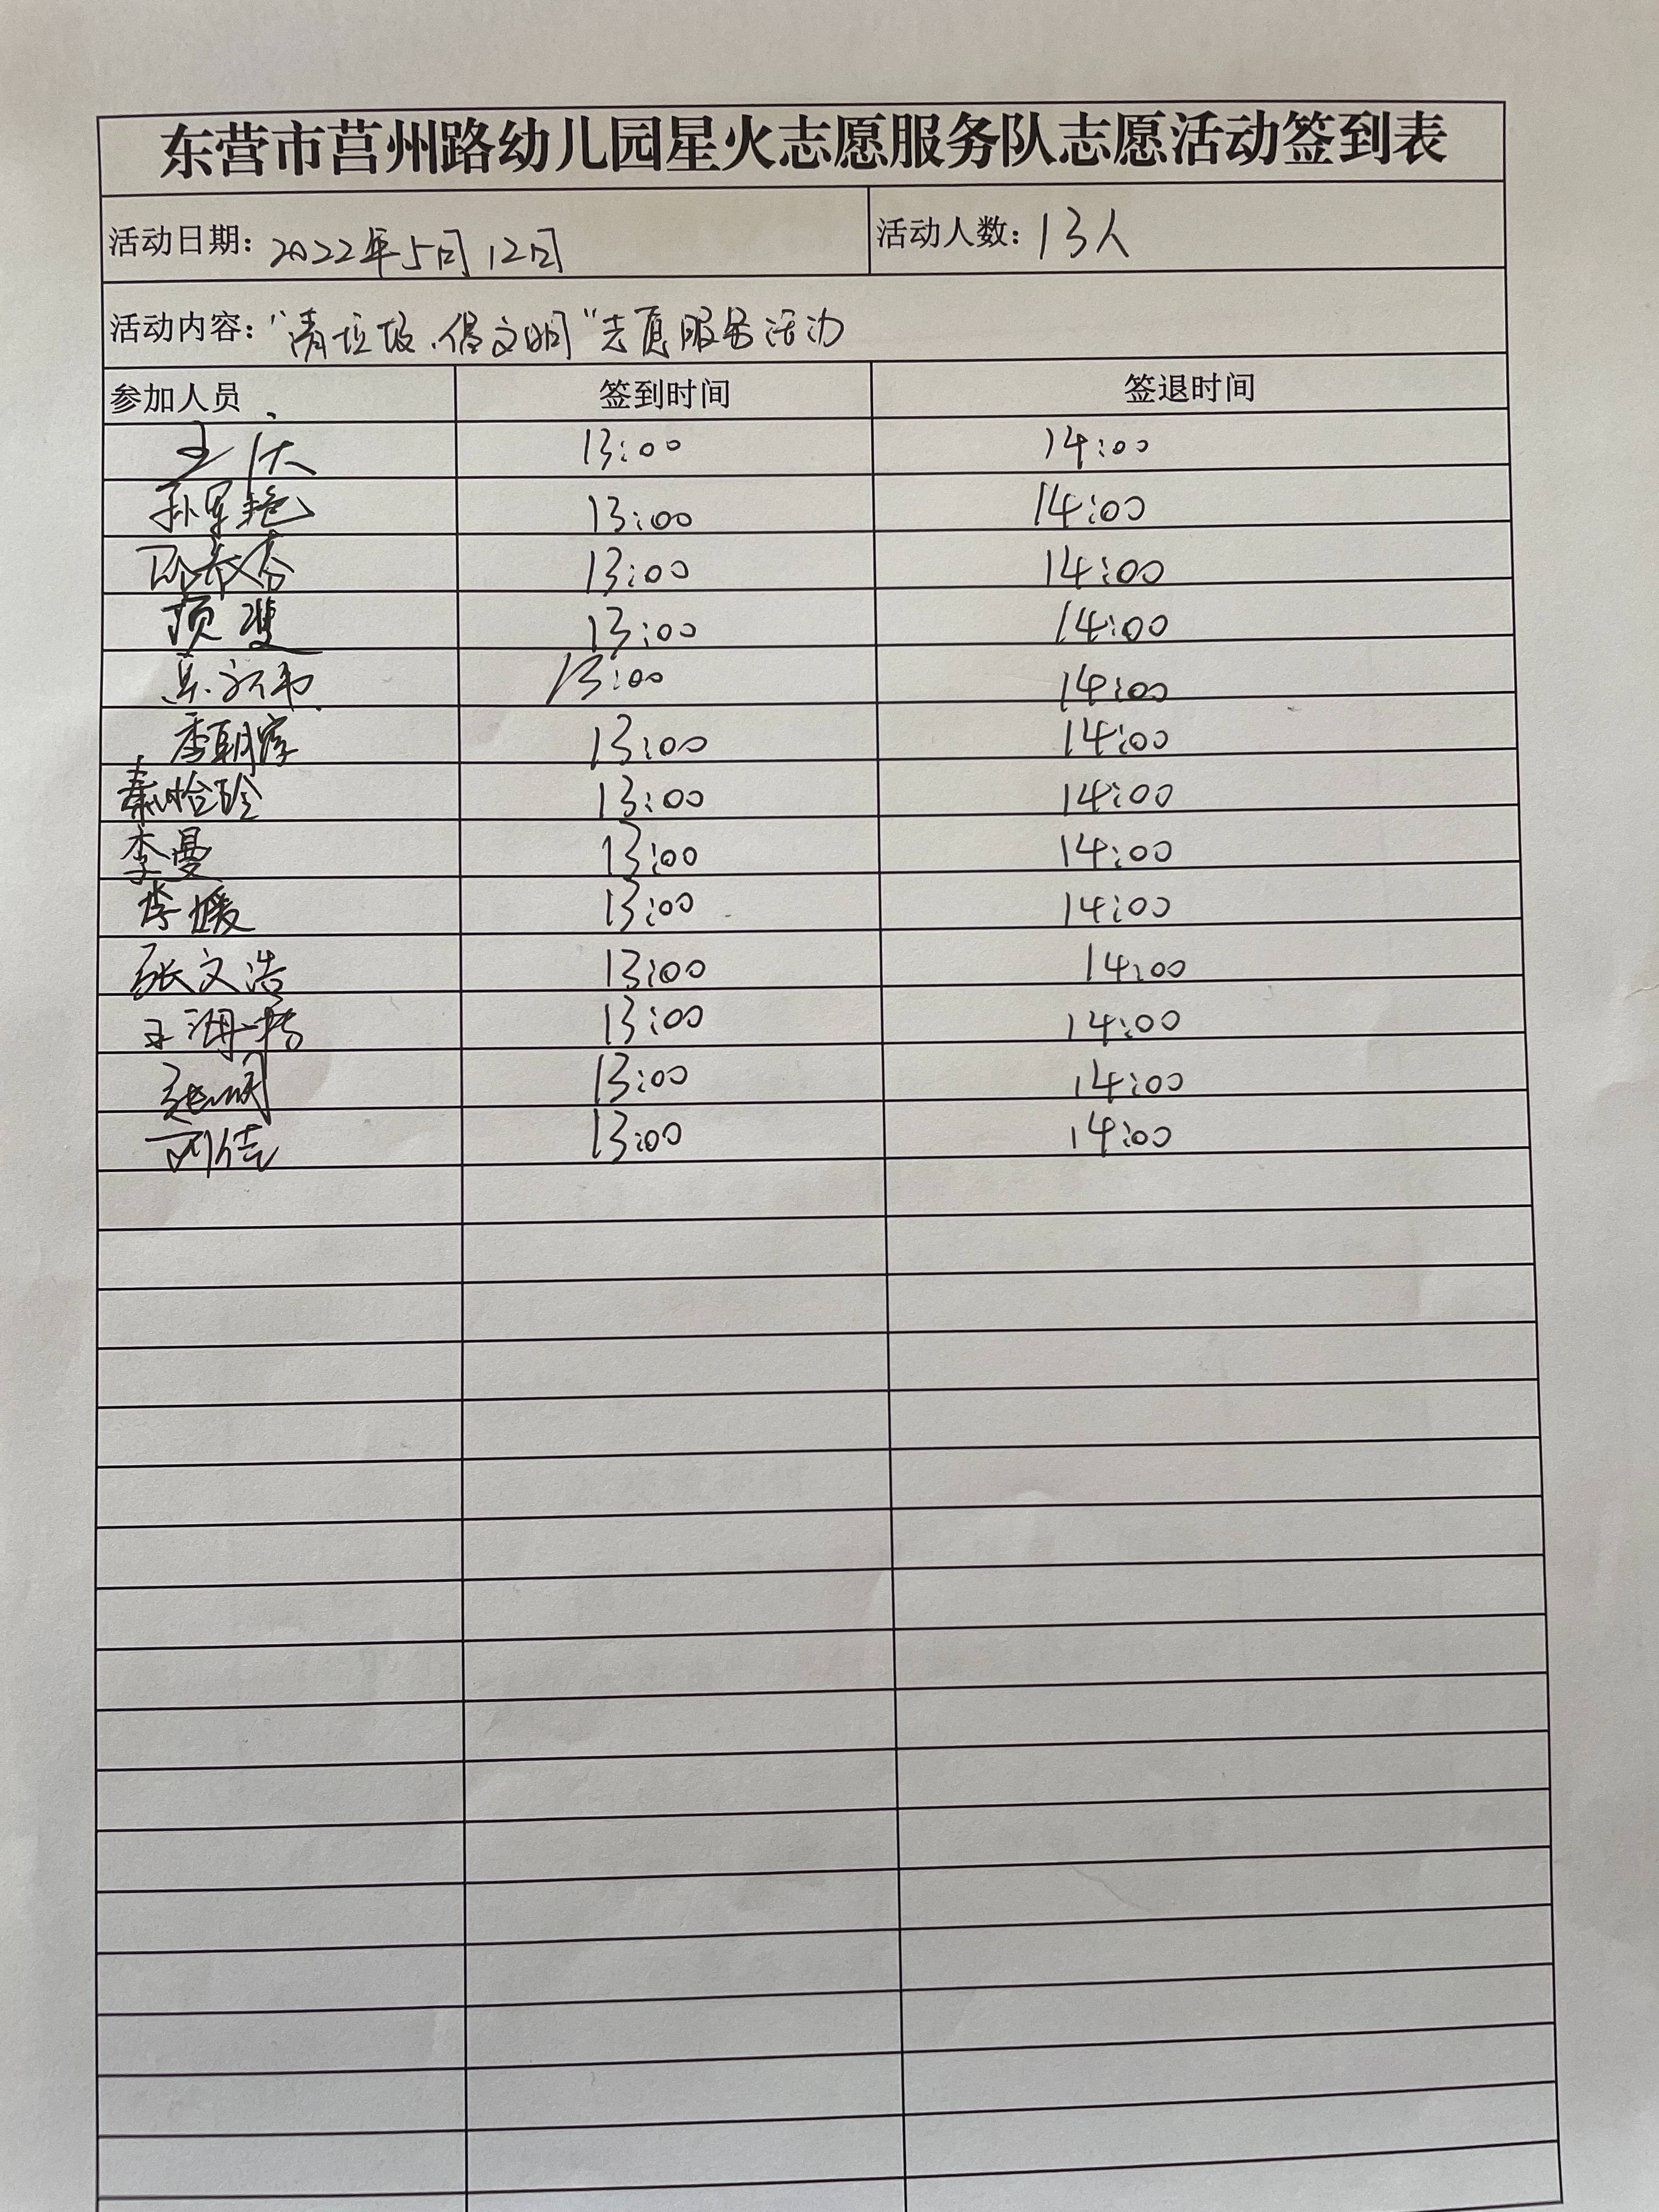 东营市莒州路幼儿园星火志愿服务队志愿活动签到表
活动日期：2022年5月12日 活动人数：13人
活动内容："清垃圾、倡文明"志愿服务活动
参加人员 签到时间 签退时间
王庆 13:00 14:00
孙军艳 13:00 14:00
13:00 14:00
项雙 13:00 14:00
13:00 14:00
李朝霞 13:00 14:00
秦怡玲 13:00 14:00
李曼 13:00 14:00
李媛 13:00 14:00
张文浩 13:00 14:00
王海梅 13:00 14:00
张明 13:00 14:00
刘佳 13:00 14:00